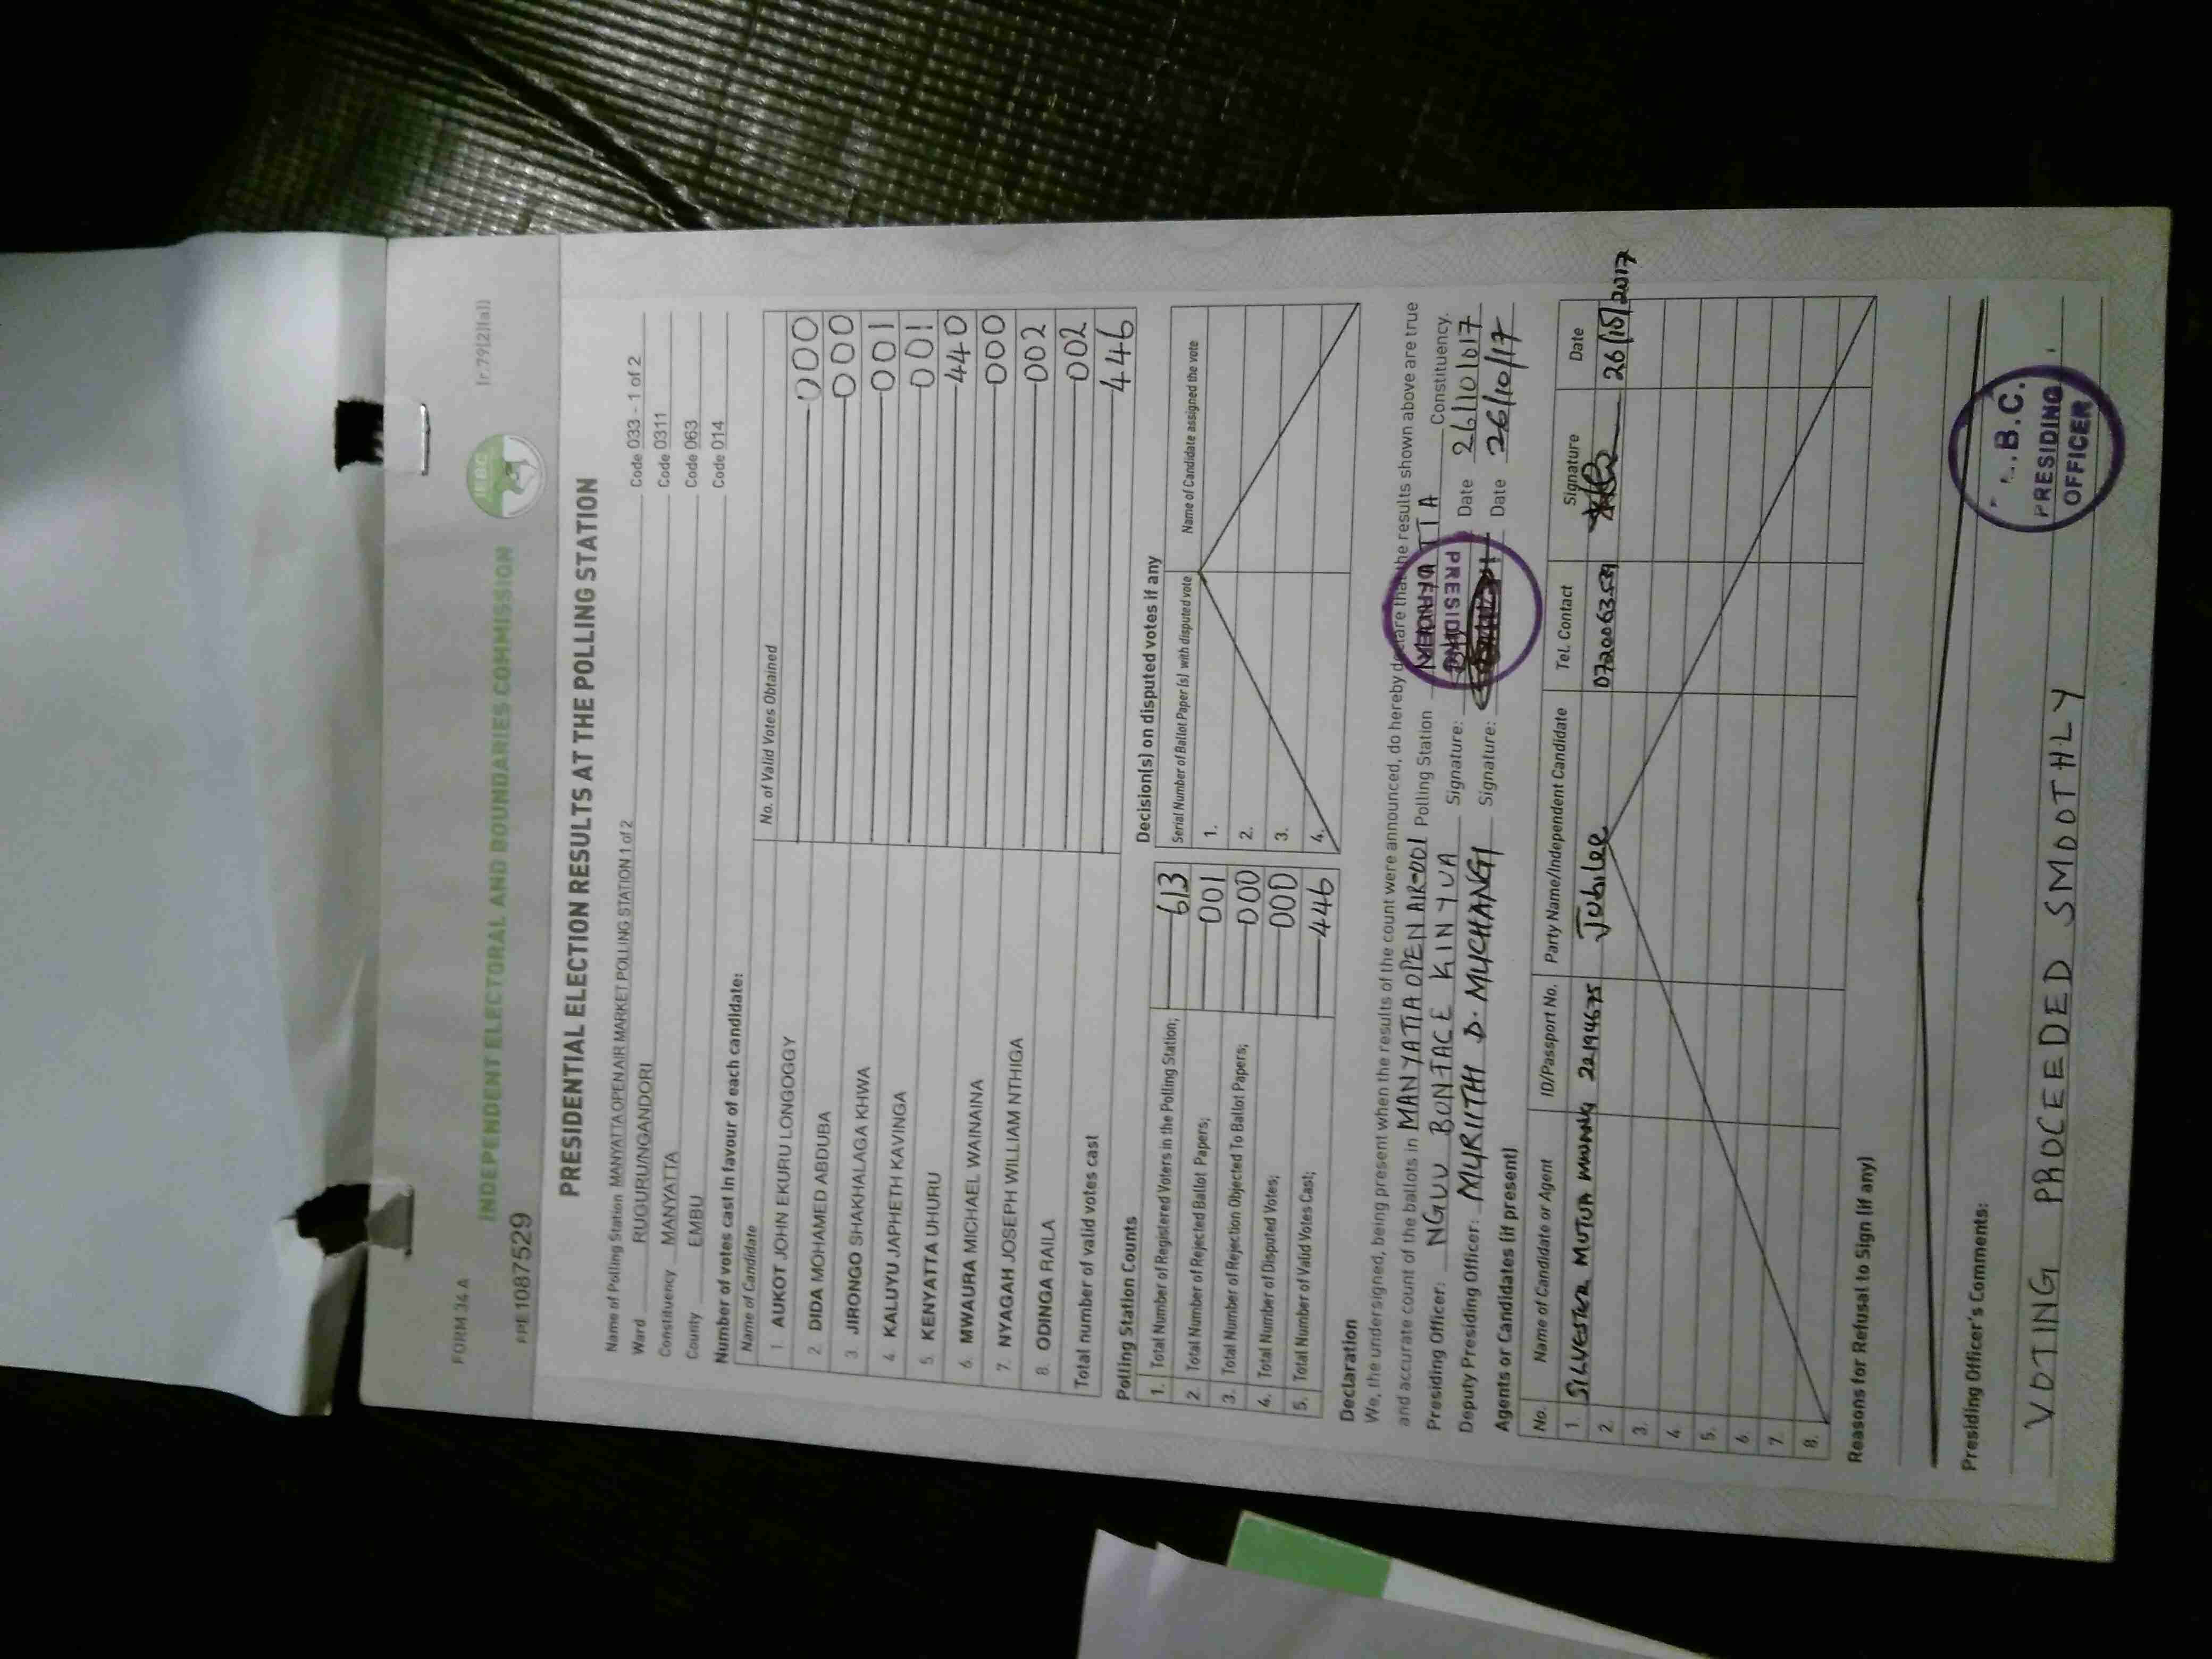 FORM 34 A
(r.79(2)(a))
INDEPENDENT ELECTORAL AND BOUNDARIES COMMISSION
IEBC
PPE1087529
PRESIDENTIAL ELECTION RESULTS AT THE POLLING STATION
Name of Polling Station MANYATTA OPEN AIR MARKET POLLING STATION 1 of 2 Code 033 - 1 of 2
Ward RUGURU/NGANDORI Code 0311
Constituency MANYATTA Code 063
County EMBU Code 014
Number of votes cast in favour of each candidate:
Name of Candidate No. of Valid Votes Obtained
1. AUKOT JOHN EKURU LONGOGGY 000
2. DIDA MOHAMED ABDUBA 000
3. JIRONGO SHAKHALAGA KHWA 001
4. KALUYU JAPHETH KAVINGA 001
5. KENYATTA UHURU 440
6. MWAURA MICHAEL WAINAINA 000
7. NYAGAH JOSEPH WILLIAM NTHIGA 002
8. ODINGA RAILA 002
Total number of valid votes cast 446
Polling Station Counts
1. Total Number of Registered Voters in the Polling Station; 613
2. Total Number of Rejected Ballot Papers; 001
3. Total Number of Rejection Objected To Ballot Papers; 000
4. Total Number of Disputed Votes; 000
5. Total Number of Valid Votes Cast; 446
Decision(s) on disputed votes if any
Serial Number of Ballot Paper (s) with disputed vote Name of Candidate assigned the vote
1.
2.
3.
4.
Declaration
We, the undersigned, being present when the results of the count were announced, do hereby declare that the results shown above are true
and accurate count of the ballots in MANYATTA OPEN AIR-001 Polling Station MANYATTA Constituency.
Presiding Officer: NGUU BONIFACE KINYUA Signature: Date 26/10/017
Deputy Presiding Officer: MURIITHI D. MUCHANGI Signature: Date 26/10/17
PRESIDING
OFFICER
Agents or Candidates (if present)
No. Name of Candidate or Agent ID/Passport No. Party Name/Independent Candidate Tel. Contact Signature Date
1. SILVESTER MUTUA 22194675 Jubilee 0720063559 26/10/2017
2.
3.
4.
5.
6.
7.
8.
Reasons for Refusal to Sign (if any)
Presiding Officer's Comments:
VOTING PROCEEDED SMOOTHLY
.B.C.
PRESIDING
OFFICER